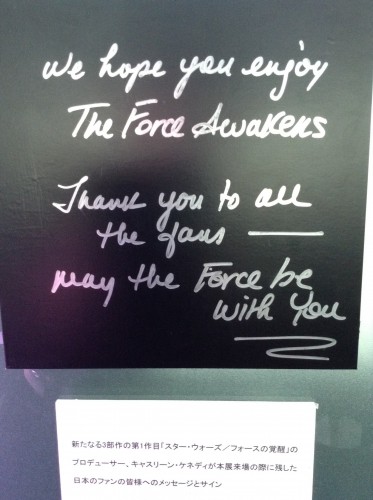 We hope you enjoy
The Force Awakens
Thank you to all
the fans —
may the Force be
with You
新たなる3部作の第1作目「スター・ウォーズ／フォースの覚醒」の
プロデューサー、キャスリーン・ケネディが本展来場の際に残した
日本のファンの皆様へのメッセージとサイン